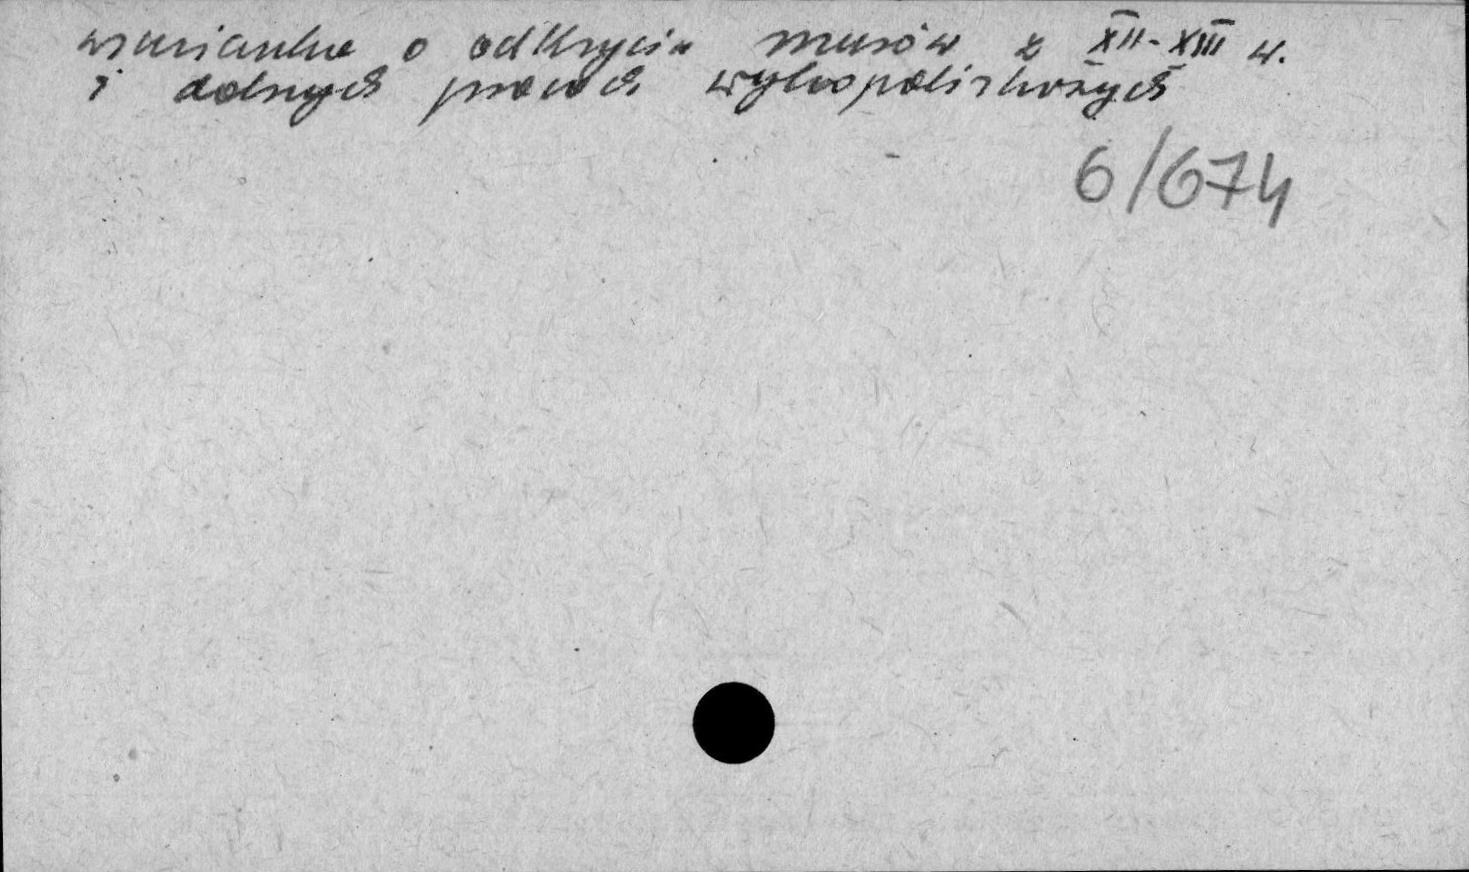 wzmianka o odkryciu murów z XII-XIII w.
i dalszych pracach wykopaliskowych
6/674